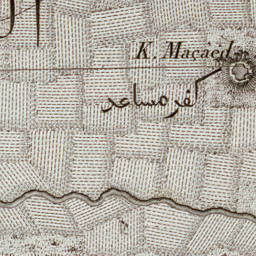 K. Maçaed
كفر مساعد